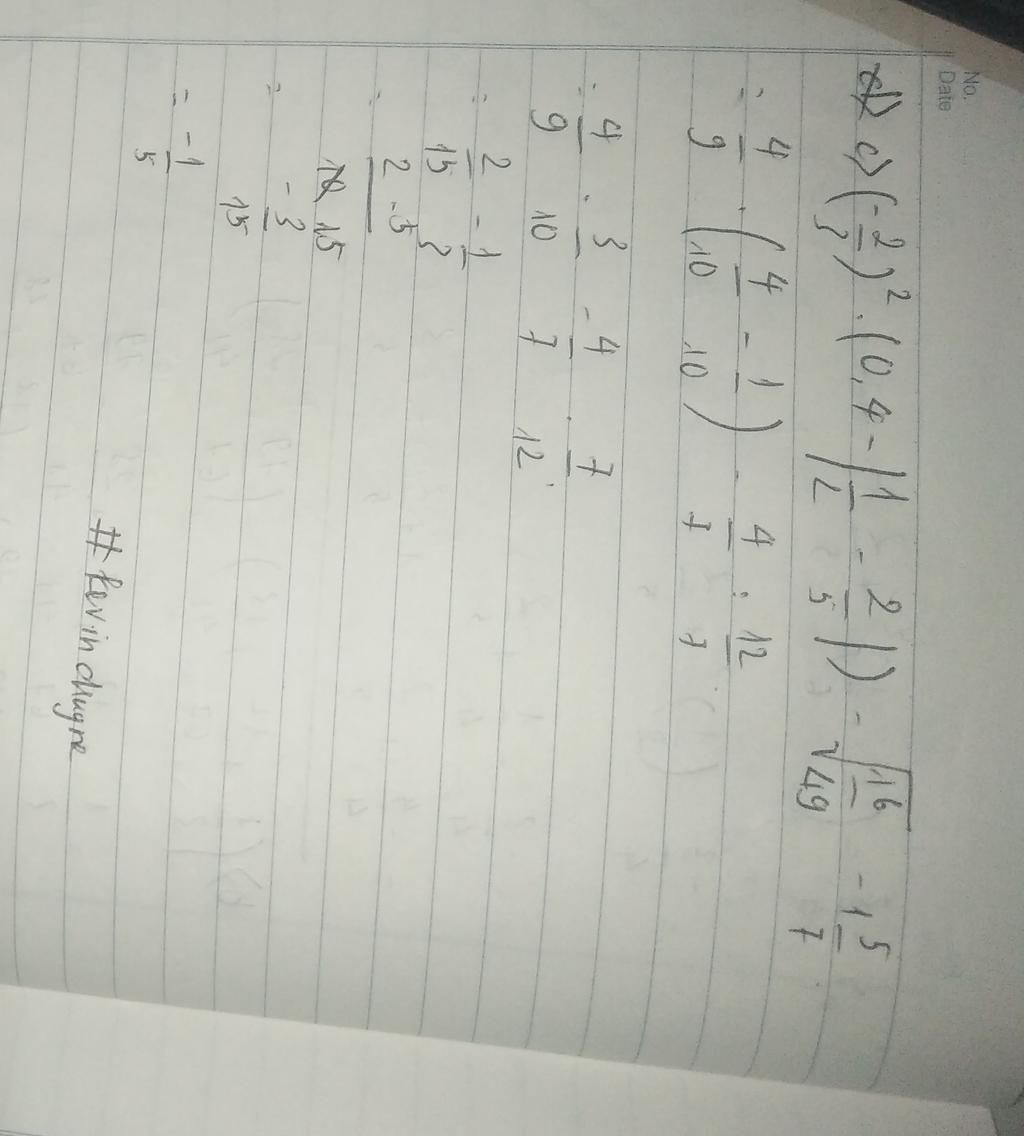 No.
Date
c) (-2/3)² . (0,4 - |1/2 - 2/5|) - √16/49 - 1 5/7
= 4/9 . (4/10 - 1/10) - 4/7 : 12/7
= 4/9 . 3/10 - 4/7 . 7/12
= 2/15 - 1/3
= 2-5/15
= -3/15
= -1/5